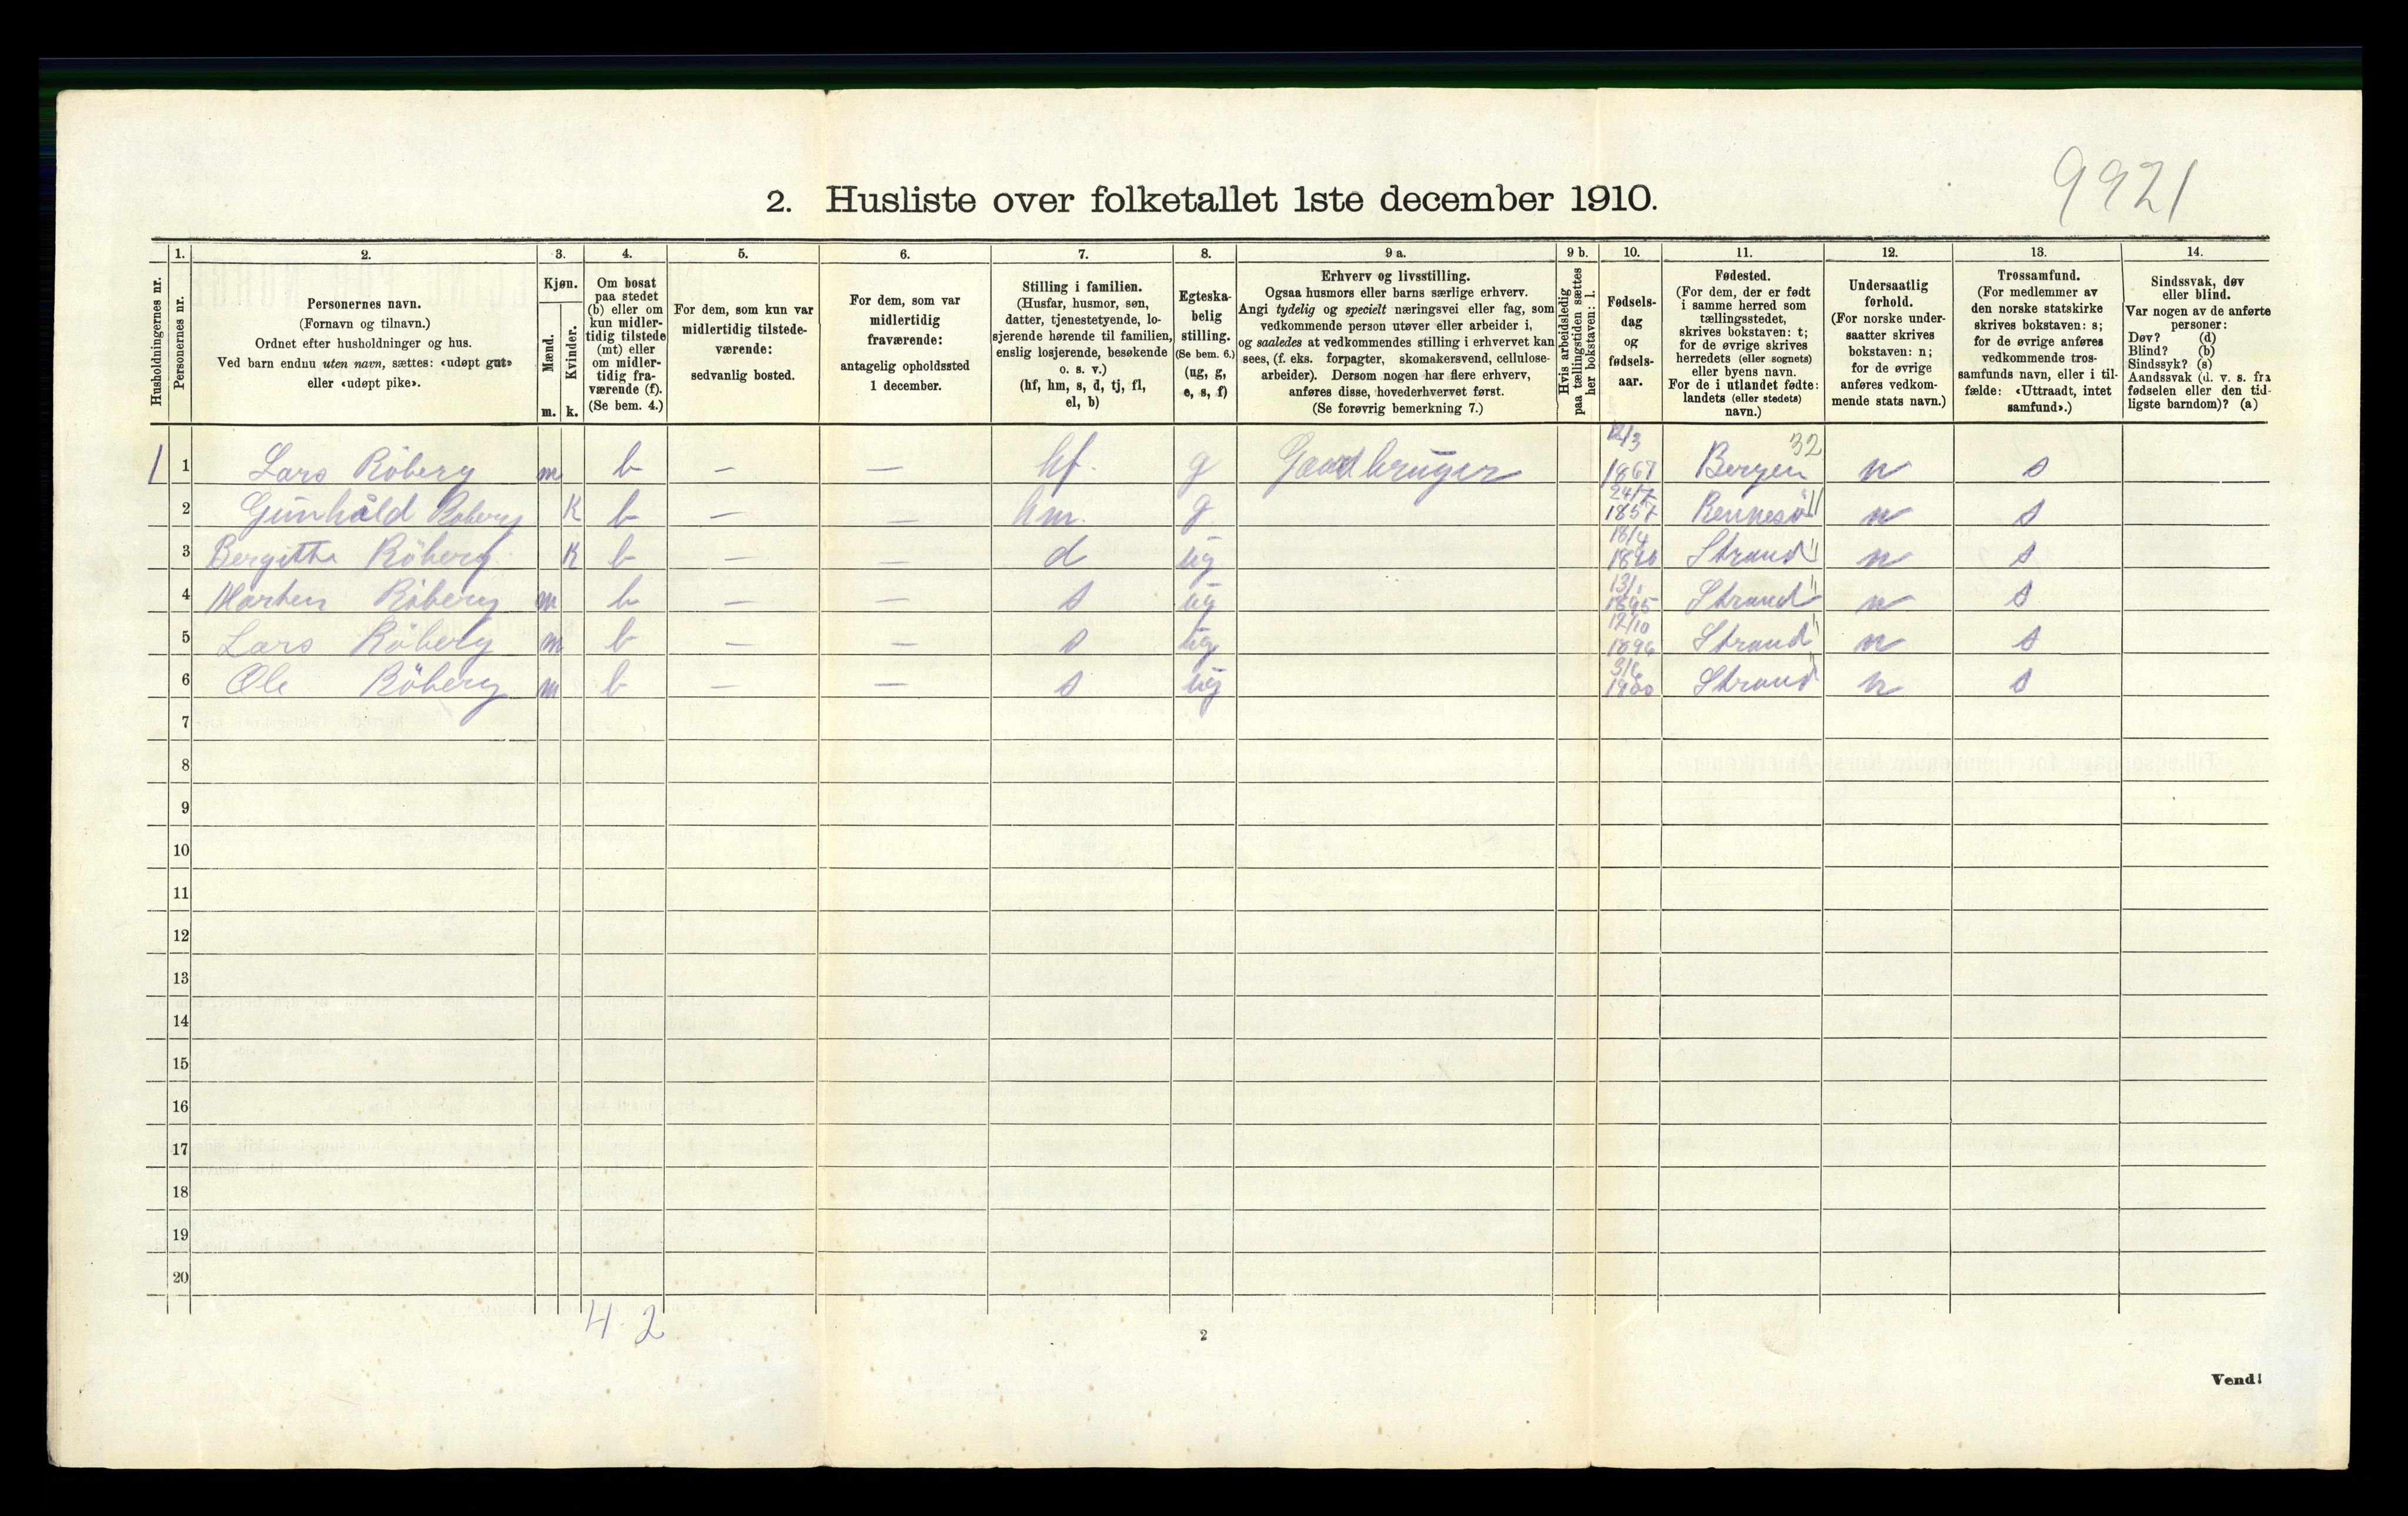 9921
2. Husliste over folketallet 1ste december 1910.
1. 2. 3. 4. 5. 6. 7. 8. 9 a. 9 b. 10. 11. 12. 13. 14.
Husholdningernes nr.
Personernes nr.
Personernes navn.
(Fornavn og tilnavn.)
Ordnet efter husholdninger og hus.
Ved barn endnu uten navn, sættes: «udøpt gut»
eller «udøpt pike».
Kjøn.
Mænd.
Kvinder.
m. k.
Om bosat
paa stedet
(b) eller om
kun midler-
tidig tilstede
(mt) eller
om midler-
tidig fra-
værende (f).
(Se bem. 4.)
For dem, som kun var
midlertidig tilstede-
værende:
sedvanlig bosted.
For dem, som var
midlertidig
fraværende:
antagelig opholdssted
1 december.
Stilling i familien.
(Husfar, husmor, søn,
datter, tjenestetyende, lo-
sjerende hørende til familien,
enslig losjerende, besøkende
o. s. v.)
(hf, hm, s, d, tj, fl,
el, b)
Egteska-
belig
stilling.
(Se bem. 6.)
(ug, g,
e, s, f)
Erhverv og livsstilling.
Ogsaa husmors eller barns særlige erhverv.
Angi tydelig og specielt næringsvei eller fag, som
vedkommende person utøver eller arbeider i,
og saaledes at vedkommendes stilling i erhvervet kan
sees, (f. eks. forpagter, skomakersvend, cellulose-
arbeider). Dersom nogen har flere erhverv,
anføres disse, hovederhvervet først.
(Se forøvrig bemerkning 7.)
Hvis arbeidsledig
paa tællingstiden sættes
her bokstaven: l.
Fødsels-
dag
og
fødsels-
aar.
Fødested.
(For dem, der er født
i samme herred som
tællingsstedet,
skrives bokstaven: t;
for de øvrige skrives
herredets (eller sognets)
eller byens navn.
For de i utlandet fødte:
landets (eller stedets)
navn.)
Undersaatlig
forhold.
(For norske under-
saatter skrives
bokstaven: n;
for de øvrige
anføres vedkom-
mende stats navn.)
Trossamfund.
(For medlemmer av
den norske statskirke
skrives bokstaven: s;
for de øvrige anføres
vedkommende tros-
samfunds navn, eller i til-
fælde: «Uttraadt, intet
samfund».)
Sindssvak, døv
eller blind.
Var nogen av de anførte
personer:
Døv? (d)
Blind? (b)
Sindssyk? (s)
Aandssvak (d. v. s. fra
fødselen eller den tid-
ligste barndom)? (a)
1 1 Lars Röberg m b — — hf. g Gaardbruger 12/3 1867 Bergen 32 n s
2 Gunhild Roberg K b — — hm. g 24/7 1857 Rennesö 11 n s
3 Bergitha Röberg K b — — d ug 18/4 Strand " n s
4 Marten Röberg m b — — s ug 13/1 1895 Strand " n s
5 Lars Röberg m b — — s ug 12/10 1896 Strand " n s
6 Ole Röberg m b — — s ug 3/6 1900 Strand " n s
7
8
9
10
11
12
13
14
15
16
17
18
19
20
4 2
2
Vend!